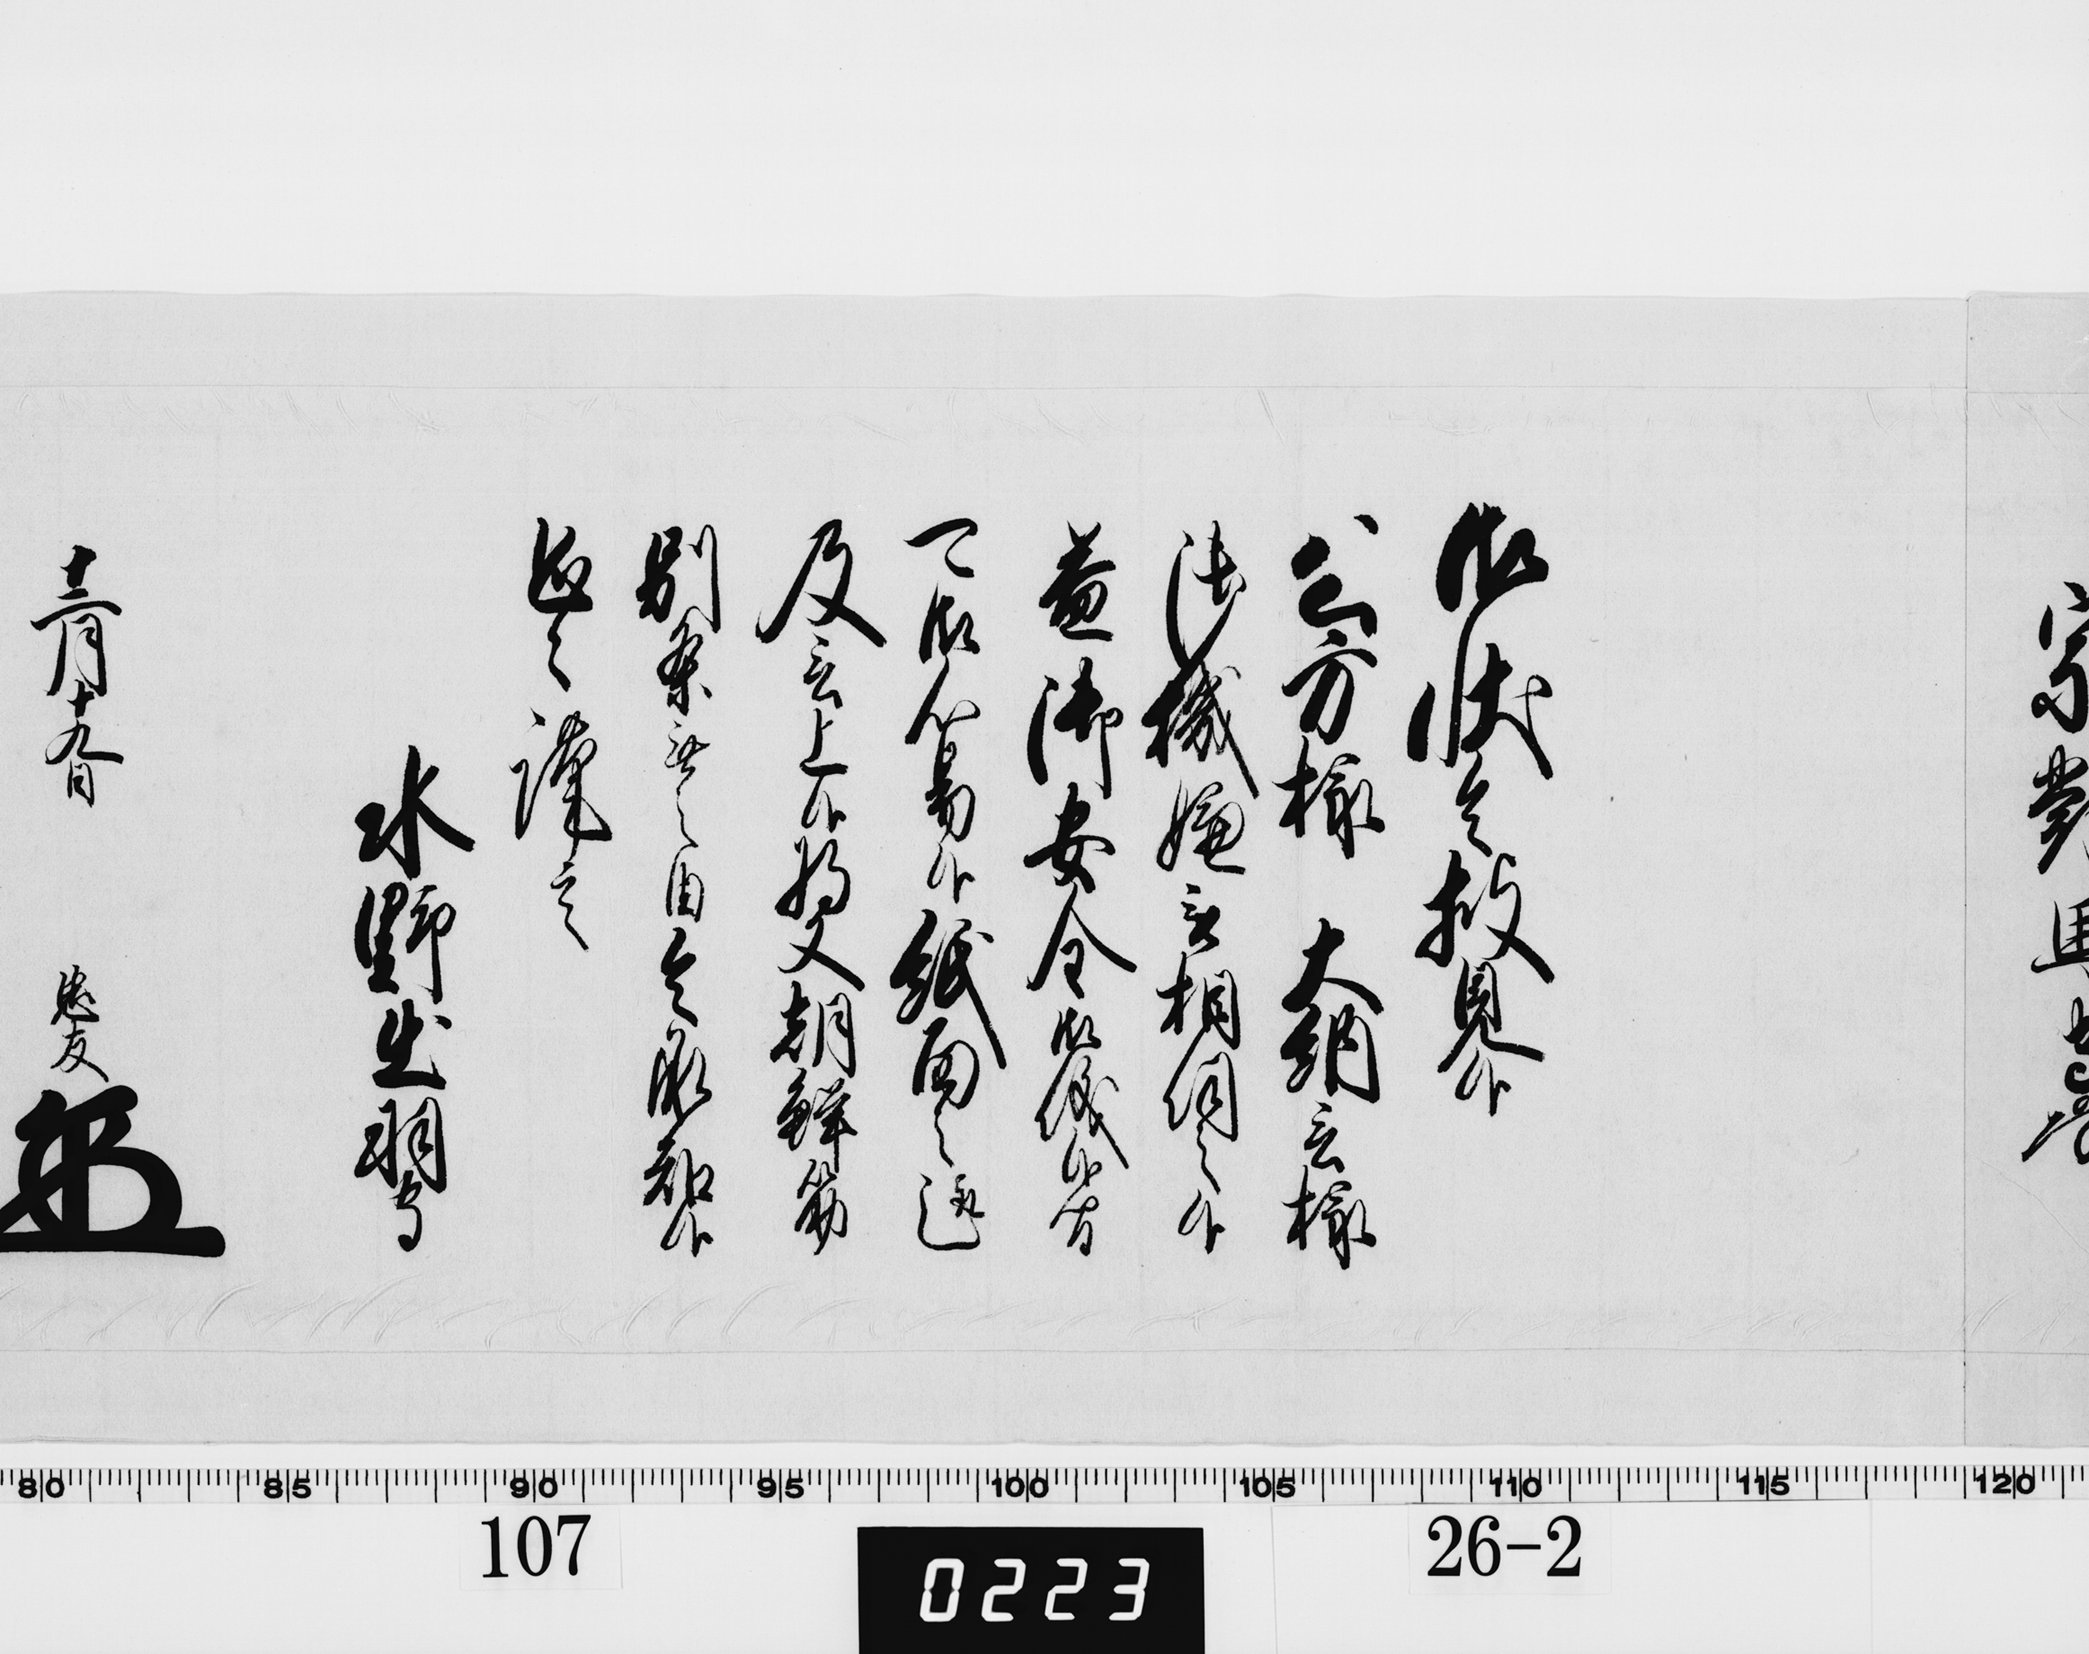 御状令披見候
公方様 大納言様
御機嫌之段相伺之候
益御安全御儀候間
可御心易候紙面之趣
及言上候將又朝鮮筋
別条無之由令承知候
恐々謹言
水野出羽守
十二月十九日
忠友
80 85 90 95 100 105 110 115 120
107
0223
26-2